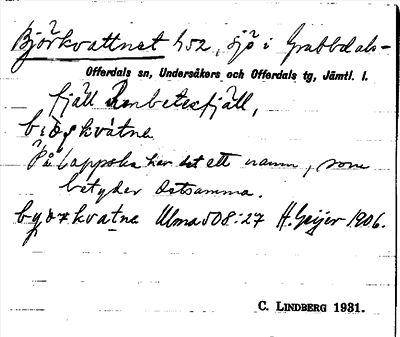 Björkvattnet 452, sjö i Grubbdals-
Offerdals sn, Undersåkers och Offerdals tg, Jämtl. l.
fjäll Renbetesfjäll,
På lappska har det ett namn, som
betyder detsamma.
Ulma 508:27 H. Geijer 1906.
C. LINDBERG 1931.